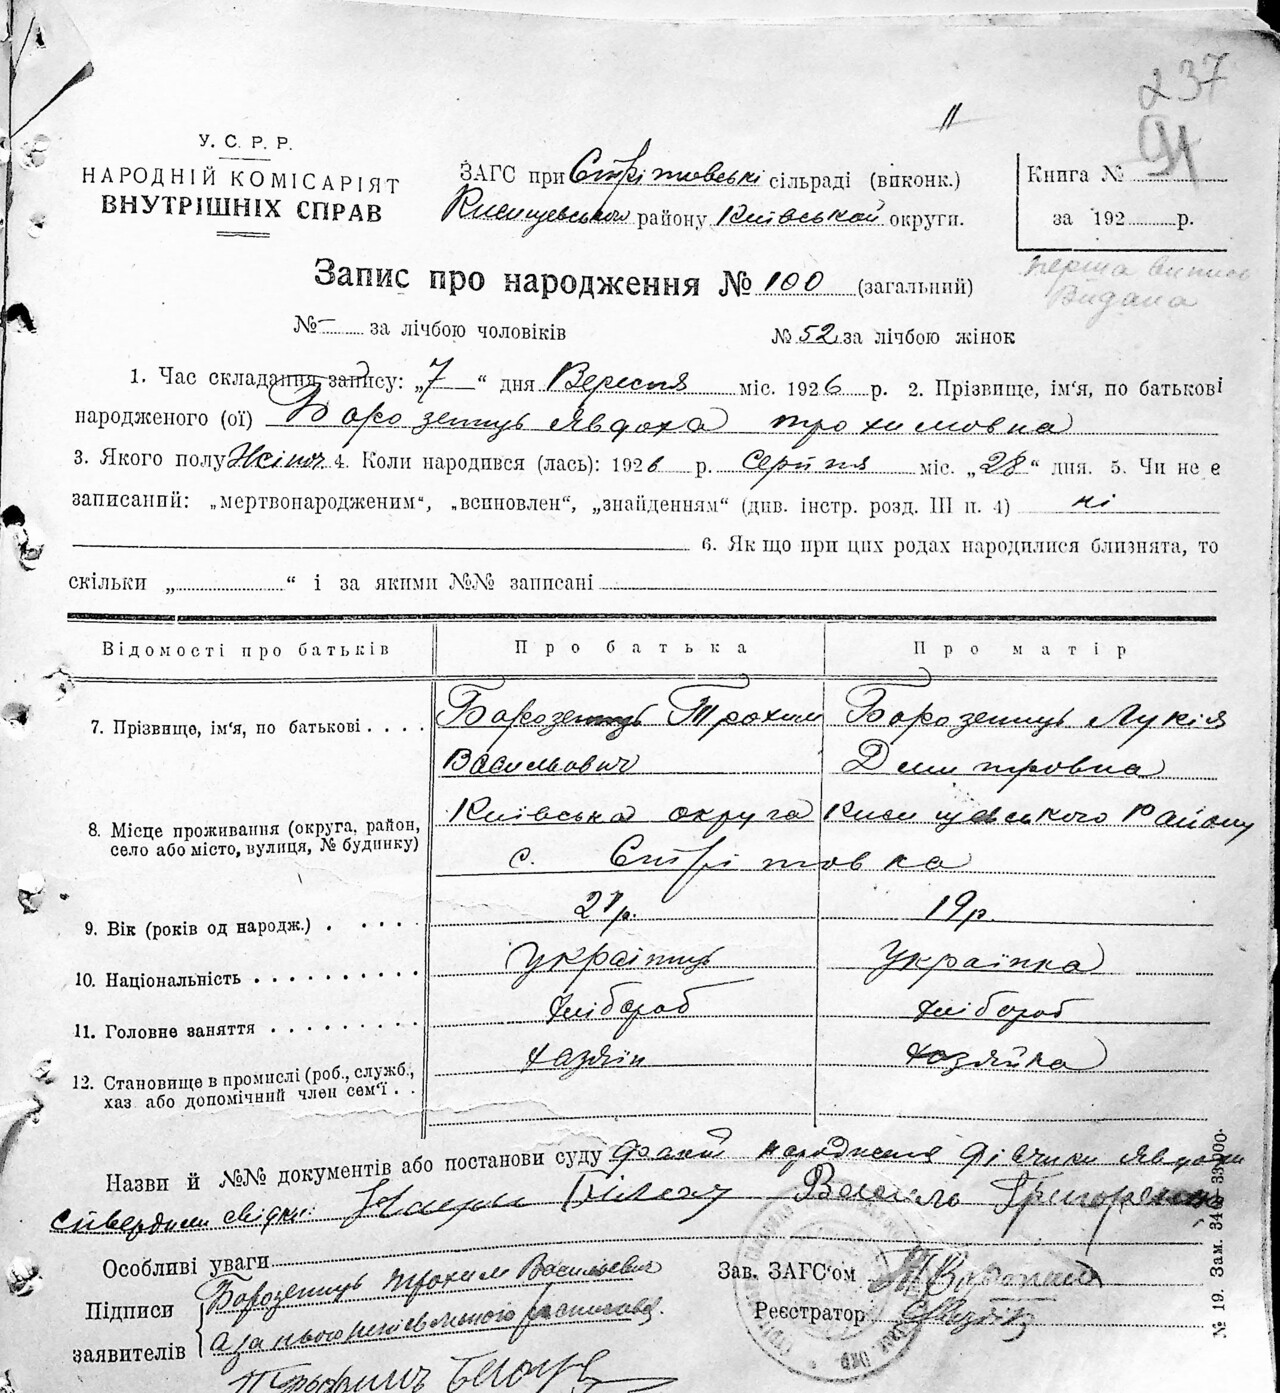 237
94
"
У. С. Р. Р.
НАРОДНІЙ КОМІСАРІЯТ
ВНУТРІШНІХ СПРАВ
ЗАГС при Стрітовські сільраді (виконк.)
району Київської округи.
Книга №
за 192 р.
перша випись
Видана
Запис про народження № 100 (загальний)
№ - за лічбою чоловіків № 52 за лічбою жінок
1. Час складання запису: „7“ дня Вересня міс. 1926 р. 2. Прізвище, ім'я, по батькові
народженого (ої) Бороденць Явдоха Трохимовна
3. Якого полу Жіноч. 4. Коли народився (лась): 1926 р. Серпня міс. „28“ дня. 5. Чи не є
записаний: „мертвонародженим“, „всиновлен“, „знайденням“ (див. інстр. розд. III п. 4) ні
6. Як що при цих родах народилися близнята, то
скільки „ “ і за якими №№ записані
Відомості про батьків Про батька Про матір
7. Прізвище, ім'я, по батькові Трохим Лукія
Васильович Дмитровна
8. Місце проживання (округа, район, Київська округа Району
село або місто, вулиця, № будинку) с. Стрітовка
9. Вік (років од народж.) 21р. 19р.
10. Національність українць українка
11. Головне заняття хлібороб хлібороб
12. Становище в промислі (роб., служб., хазяїн хазяйка
хаз або допомічний член сем'ї
Назви й №№ документів або постанови суду факт народження дівчики Явдохи
ствердили свідки: Василь Григоренко
Особливі уваги
Зав. ЗАГС'ом
Підписи Трохим Васильевич
Реєстратор
заявителів а за нього
№ 19. Зам. 3400